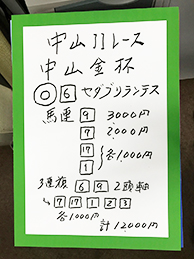 中山11レース
中山金杯
◎ 6 セダブリランテス
馬連 9 3000円
7 2000円
17
1 } 各1,000円
3連複 6 9 2頭軸
↳ 7 17 1 2 3
各1000円
計12000円